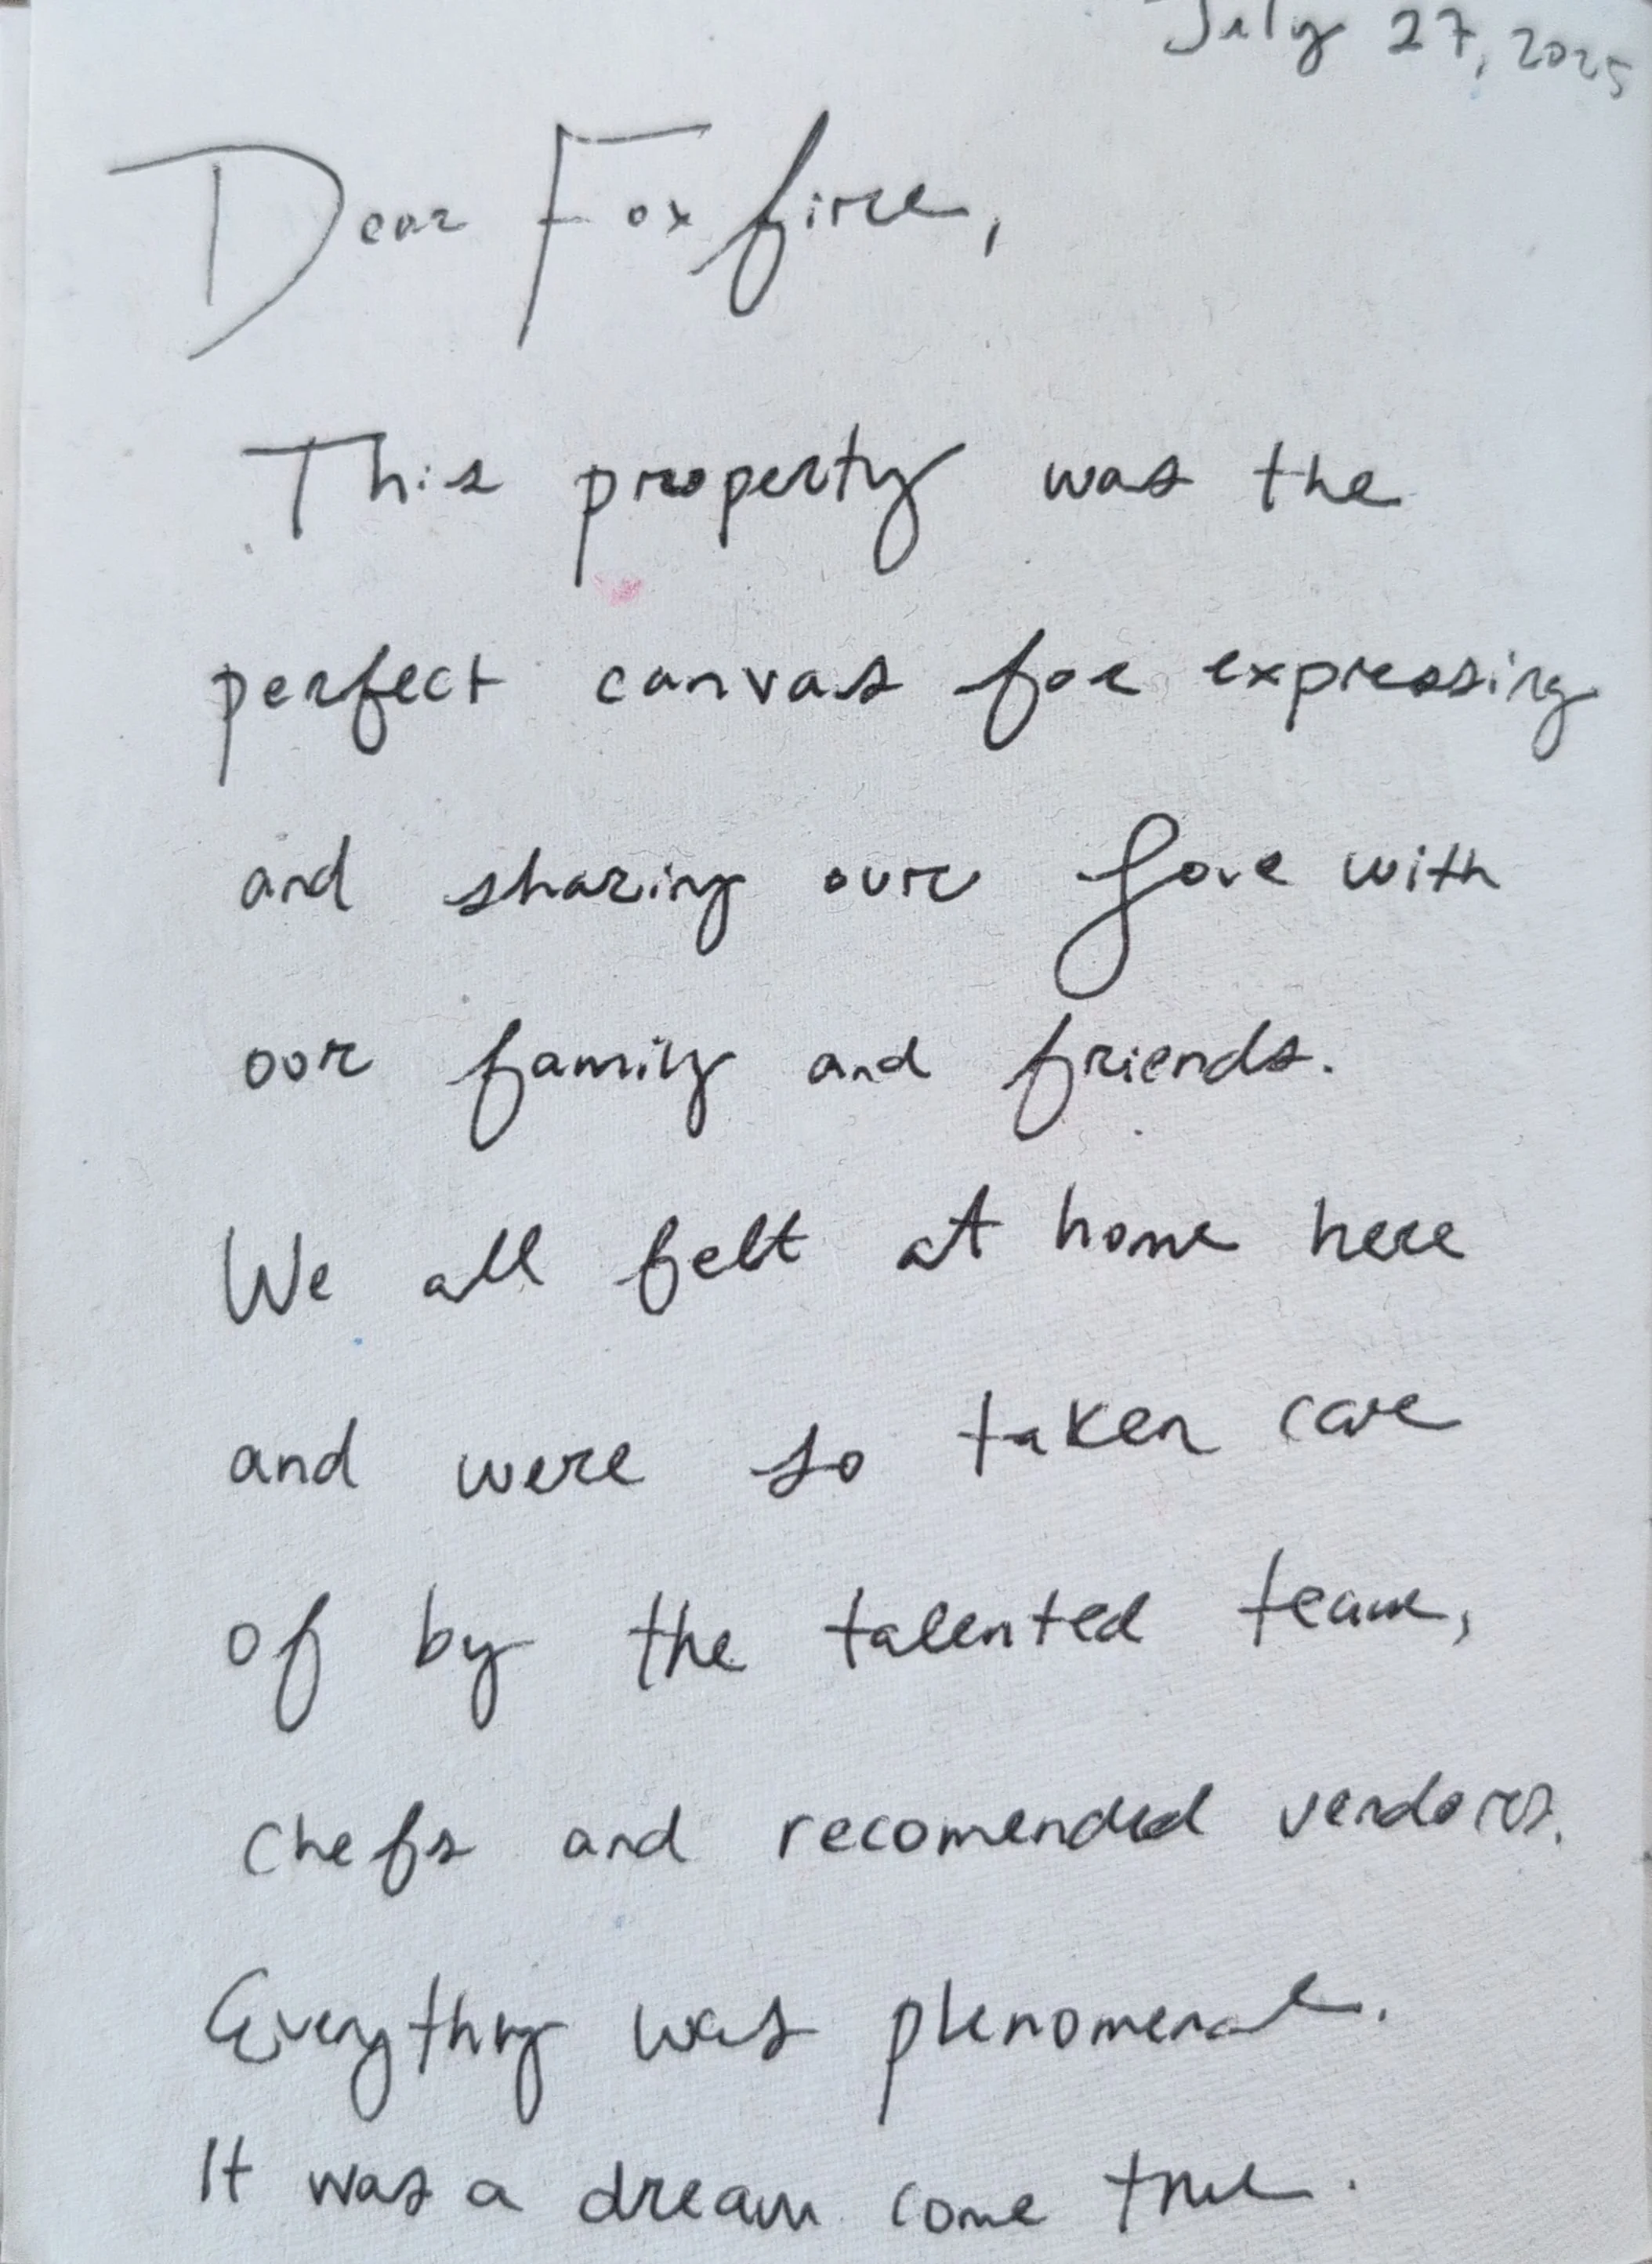 July 27, 2025
Dear Foxfire,
This property was the
perfect canvas for expressing
and sharing our Love with
our family and friends.
We all felt at home here
and were so taken care
of by the talented team,
chefs and recomended vendors.
Everything was phenomenal.
It was a dream come true.